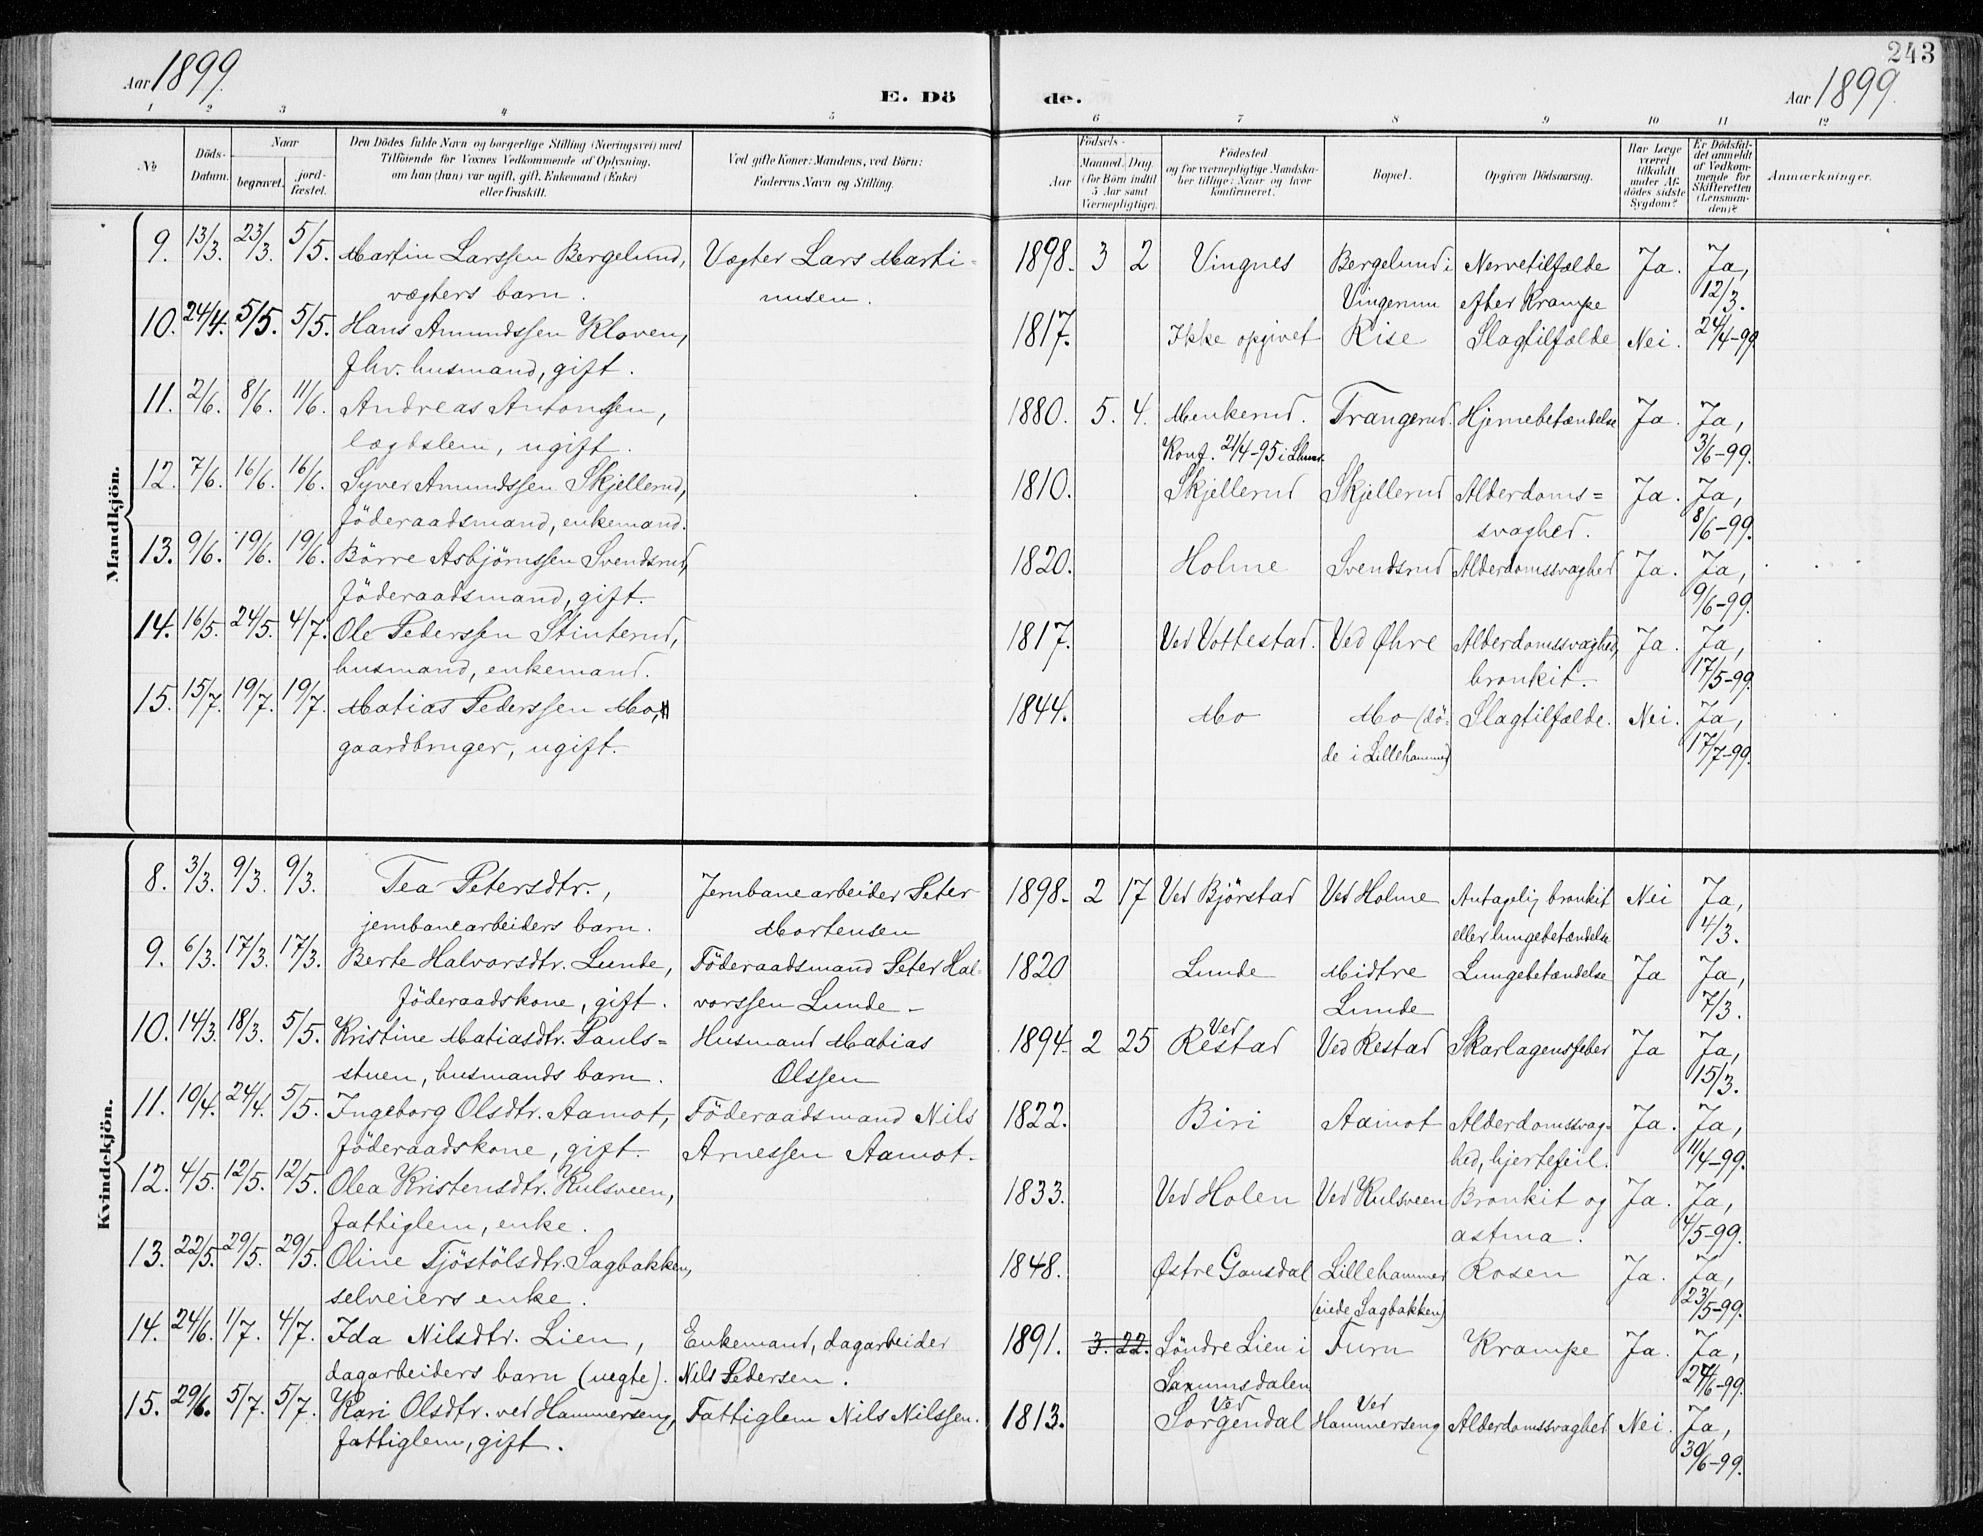 243
Aar 1899.
E. Dö de.
Aar 1899.
1 2 3 4 5 6 7 8 9 10 11 12
No
Döds-Datum.
Naar
begravet.
jord-fæstet.
Den Dödes fulde Navn og borgerlige Stilling (Næringsvei) med
Tilföiende for Voxnes Vedkommende af Oplysning,
om han (hun) var ugift, gift, Enkemand (Enke)
eller fraskilt.
Ved gifte Koner: Mandens, ved Börn:
Faderens Navn og Stilling.
Födsels-
Aar
Maaned. Dag.
(for Börn indtil
5 Aar samt
Værnepligtige).
Födested
og for værnepligtige Mandska-
ber tillige: Naar og hvor
konfirmeret.
Bopæl.
Opgiven Dödsaarsag.
Har Læge
været
tilkaldt
under Af-
dödes sidste
Sygdom?
Er Dödsfal-
det anmeldt
af Vedkom-
mende for
Skifteretten
(Lensman-
den)?
Anmærkninger.
Mandkjön.
9. 13/3. 23/3. 5/5. Martin Larssen Bergelund, Vægter Lars Marti- 1898. 3 2 Vingnes Bergelund i Nervetilfælde Ja. Ja,
vægters barn. nusen. Vingrum efter Krampe 12/3.
10. 24/4. 5/5. 5/5. Hans Amundssen Kloven, 1817. Ikke opgivet Rise Slagtilfælde Nei. 24/4-99
fhv. husmand, gift.
11. 2/6. 8/6. 11/6. Andreas Antonssen, 1880. 5. 4. Menkerud. Trangerud. Hjernebetændelse Ja. Ja,
lægdslem, ugift. Konf. 21/4-95 i Lhmr. 3/6-99.
12. 7/6. 16/6. 16/6. Syver Amundssen Skjellerud, 1810. Skjellerud Skjellerud Alderdoms= Ja. Ja,
föderaadsmand, enkemand. svaghed. 8/6-99.
13. 9/6. 19/6. 19/6. Börre Asbjörnssen Svendsrud, 1820. Holme Svendsrud Alderdomssvaghed Ja. Ja,
föderaadsmand, gift. 9/6-99.
14. 16/5. 24/5. 4/7. Ole Pederssen Stinterud, 1817. Ved Vottestad. Ved Øhre Alderdomssvaghed, Ja. Ja,
husmand, enkemand. bronkit. 17/5-99.
15. 15/7. 19/7. 19/7. Matias Pederssen Mo, 1844. Mo Mo (dö- Slagtilfælde. Nei. Ja,
gaardbruger, ugift. de i Lillehammer) 17/7-99.
Kvindekjön.
8. 3/3. 9/3. 9/3. Tea Petersdtr., Jernbanearbeider Peter 1898. 2 17 Ved Björstad Ved Holme Antagelig bronkit Nei Ja,
jernbanearbeiders barn. Mortensen eller lungebetændelse 4/3.
9. 6/3. 17/3. 17/3. Berte Halvorsdtr. Lunde, Föderaadsmand Peter Hal- 1820 Lunde Midtre Lungebetændelse Ja Ja,
föderaadskone, gift. vorssen Lunde - Lunde 7/3.
10. 14/3. 18/3. 5/5. Kristine Matiasdtr. Pauls= Husmand Matias 1894. 2 25 Ved Restad Ved Restad Skarlagensfeber Ja Ja,
stuen, husmands barn. Olssen 15/3.
11. 10/4. 24/4. 5/5. Ingeborg Olsdtr. Aamot, Föderaadsmand Nils 1822. Biri Aamot Alderdomssvag- Ja. Ja,
föderaadskone, gift. Arnessen Aamot. hed, hjertefeil. 11/4-99.
12. 4/5. 12/5. 12/5. Olea Kristensdtr. Kulsveen, 1833. Ved Holen Ved Kulsveen Bronkit og Ja. Ja,
fattiglem, enke. astma. 4/5-99.
13. 22/5. 29/5. 29/5. Oline Tjöstölsdtr. Sagbakken, 1848. Østre Gausdal Lillehammer Rosen Ja. Ja,
selveiers enke. (eiede Sagbakken) 23/5-99.
14. 24/6. 1/7. 4/7. Ida Nilsdtr. Lien, Enkemand, dagarbeider 1891. 3. 22. Söndre Lien i Furu Krampe Ja. Ja,
dagarbeiders barn (uegte). Nils Pedersen. Saxumsdalen 24/6-99.
15. 29/6. 5/7. 5/7. Kari Olsdtr. ved Hammerseng, Fattiglem Nils Nilssen. 1813. Ved Sorgendal Ved Hammerseng Alderdomssvaghed Nei. Ja,
fattiglem, gift. 30/6-99.